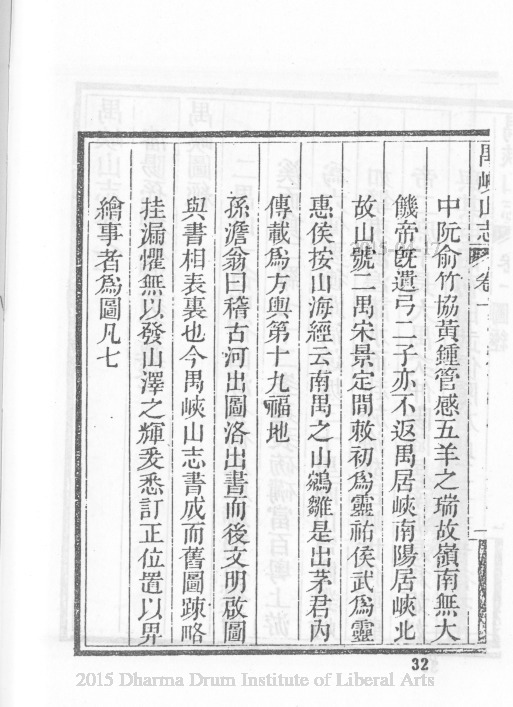 禺峽山志 卷一
中阮俞竹協黃鍾管感五羊之瑞故嶺南無大
饑帝旣遺弓二子亦不返禺居峽南陽居峽北
故山號二禺宋景定間敕初爲靈祐侯武爲靈
惠侯按山海經云南禺之山鵷雛是出茅君內
傳載爲方輿第十九福地
孫澹翁曰稽古河出圖洛出書而後文明啟圖
與書相表裏也今禺峽山志書成而舊圖疎略
挂漏懼無以發山澤之輝爰悉訂正位置以畀
繪事者爲圖凡七
32
2015 Dharma Drum Institute of Liberal Arts